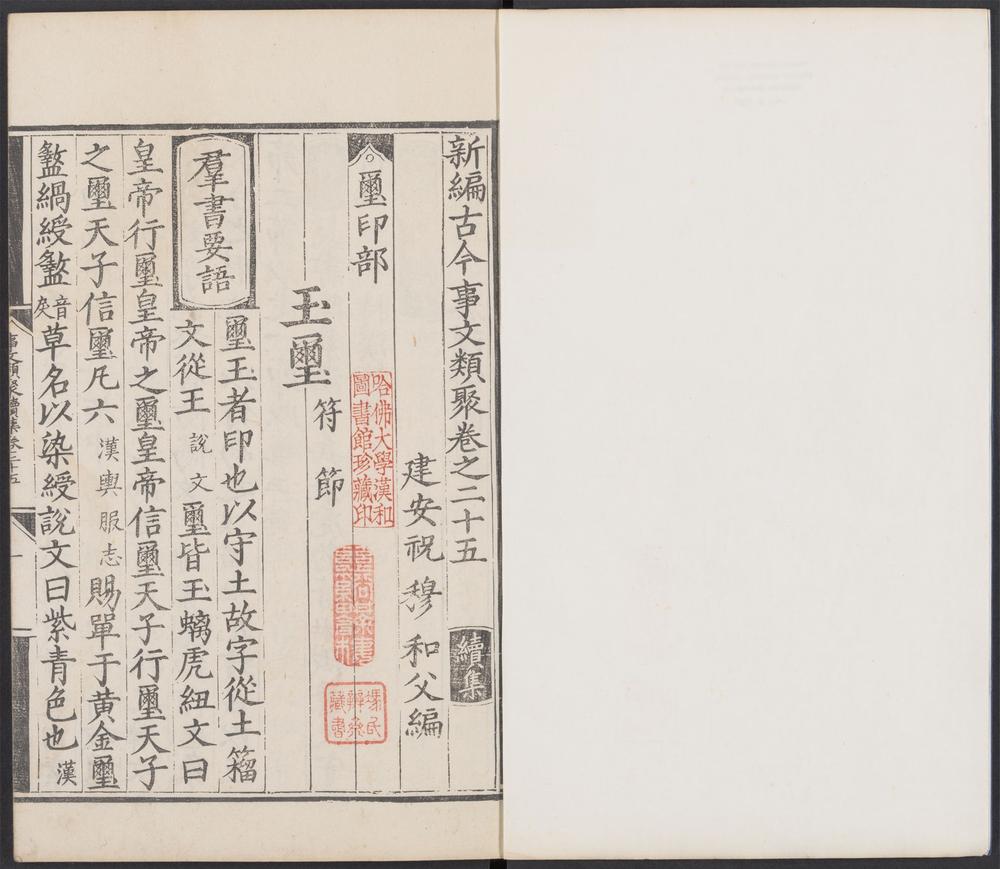 新編古今事文類聚卷之二十五 續集
建安祝穆和父編
璽印部
玉璽 符節
羣書要語
璽王者印也以守土故字從土籀
文從玉說文璽皆玉螭虎紐文曰
皇帝行璽皇帝之璽皇帝信璽天子行璽天子
之璽天子信璽凡六漢輿服志賜單于黃金璽
盭緺綬盭音戾草名以染綬說文曰紫青色也漢
哈佛大學漢和
圖書館珍藏印